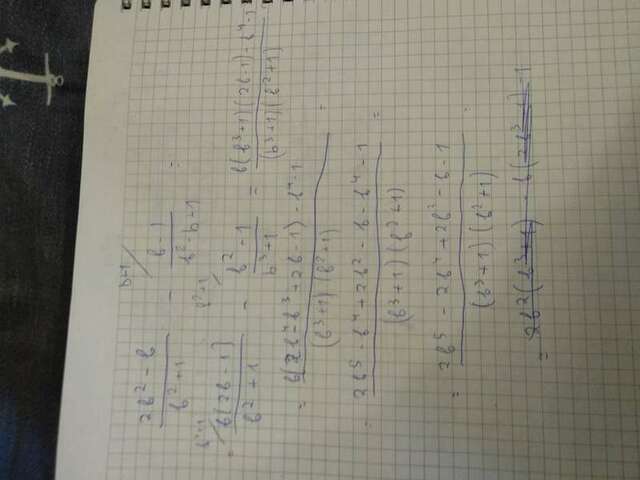 b+1
(2b² - b)/(b²+1) - (b-1)/(b²-b-1) =
b³+1 b²+1
= b(2b-1)/(b²+1) - (b²-1)/(b³+1) = (b(b³+1)(2b-1) - b⁴-1)/((b³+1)(b²+1))
= (b(2b⁴-b³+2b-1) - b⁴-1)/((b³+1)(b²+1)) =
= (2b⁵ - b⁴ + 2b² - b - b⁴ - 1)/((b³+1)(b²+1)) =
= (2b⁵ - 2b⁴ + 2b² - b - 1)/((b³+1)(b²+1)) =
= 2b²(b³+1) - b(2b³-1) - 1